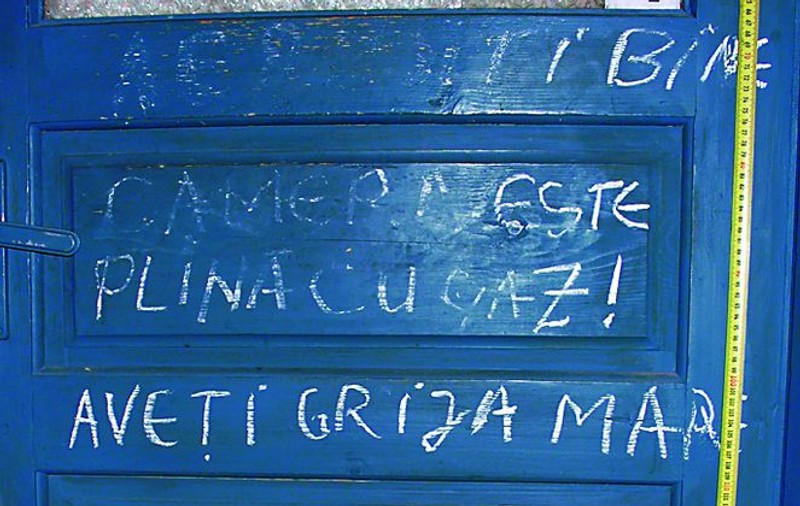 BINE
CAMERA ESTE
PLINA CU GAZ!
AVEȚI GRIJA MARE